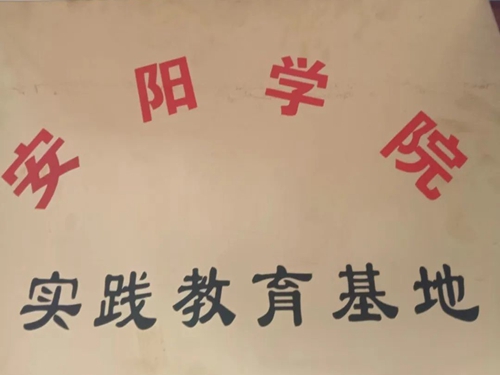 安阳学院
实践教育基地